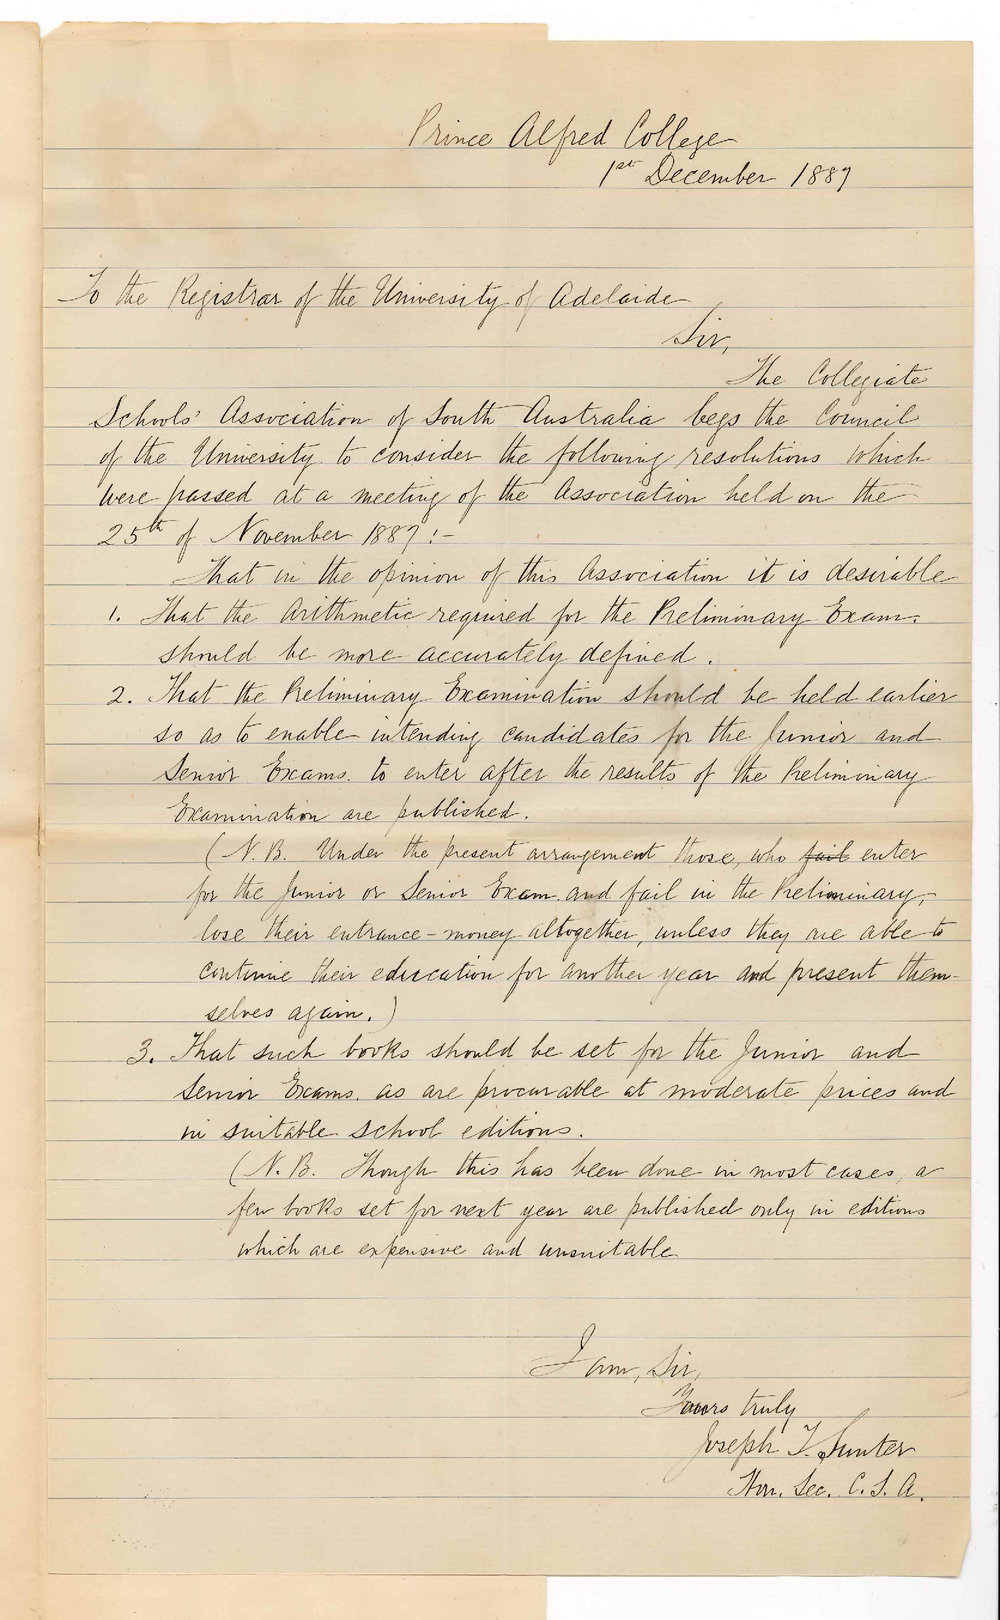 Prince Alfred College
1st December 1887
To the Registrar of the University of Adelaide
Sir,
The Collegiate
Schools' Association of South Australia begs the Council
of the University to consider the following resolutions which
were passed at a meeting of the Association held on the
25th of November 1887:-
That in the opinion of this Association it is desirable
1. That the Arithmetic required for the Preliminary Exam.
should be more accurately defined.
2. That the Preliminary Examination should be held earlier
so as to enable intending candidates for the Junior and
Senior Exams. to enter after the results of the Preliminary
Examination are published.
(N.B. Under the present arrangement those, who fail enter
for the Junior or Senior Exam. and fail in the Preliminary,
lose their entrance-money altogether, unless they are able to
continue their education for another year and present them-
selves again.)
3. That such books should be set for the Junior and
Senior Exams. as are procurable at moderate prices and
in suitable school editions.
(N.B. Though this has been done in most cases, a
few books set for next year are published only in editions
which are expensive and unsuitable
I am, Sir,
Yours truly
Joseph T. Sunter
Hon. Sec. C.S.A.